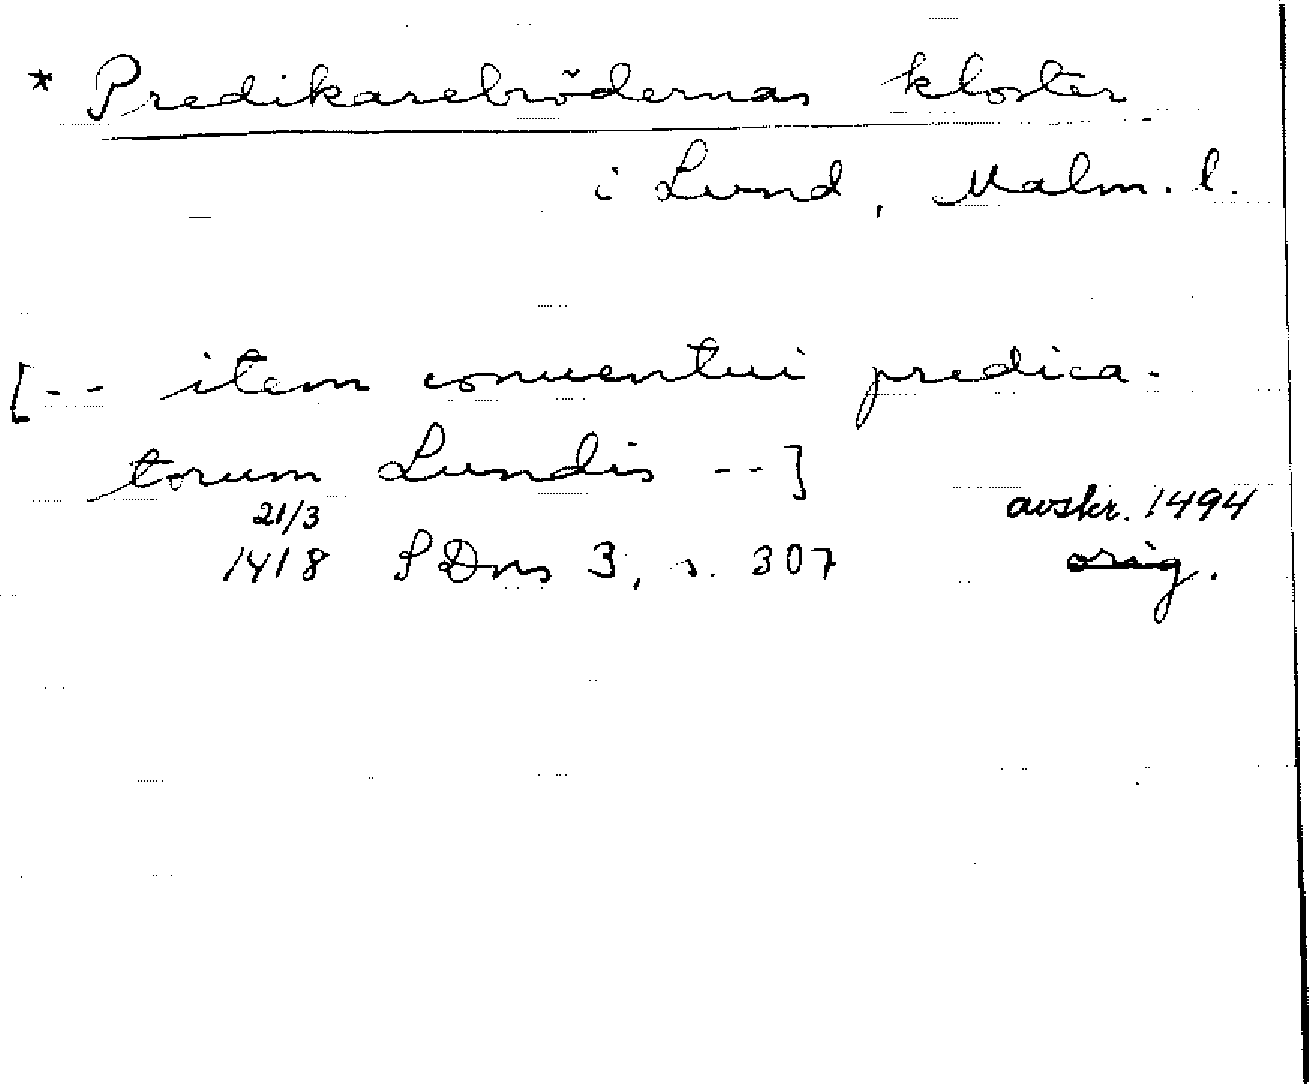 * Predikarebrödernas kloster
i Lund, Malm. l.
[-- item conuentui predica-
torum Lundis --]
21/3
avskr. 1494
1418 SDns 3, s. 307 orig.